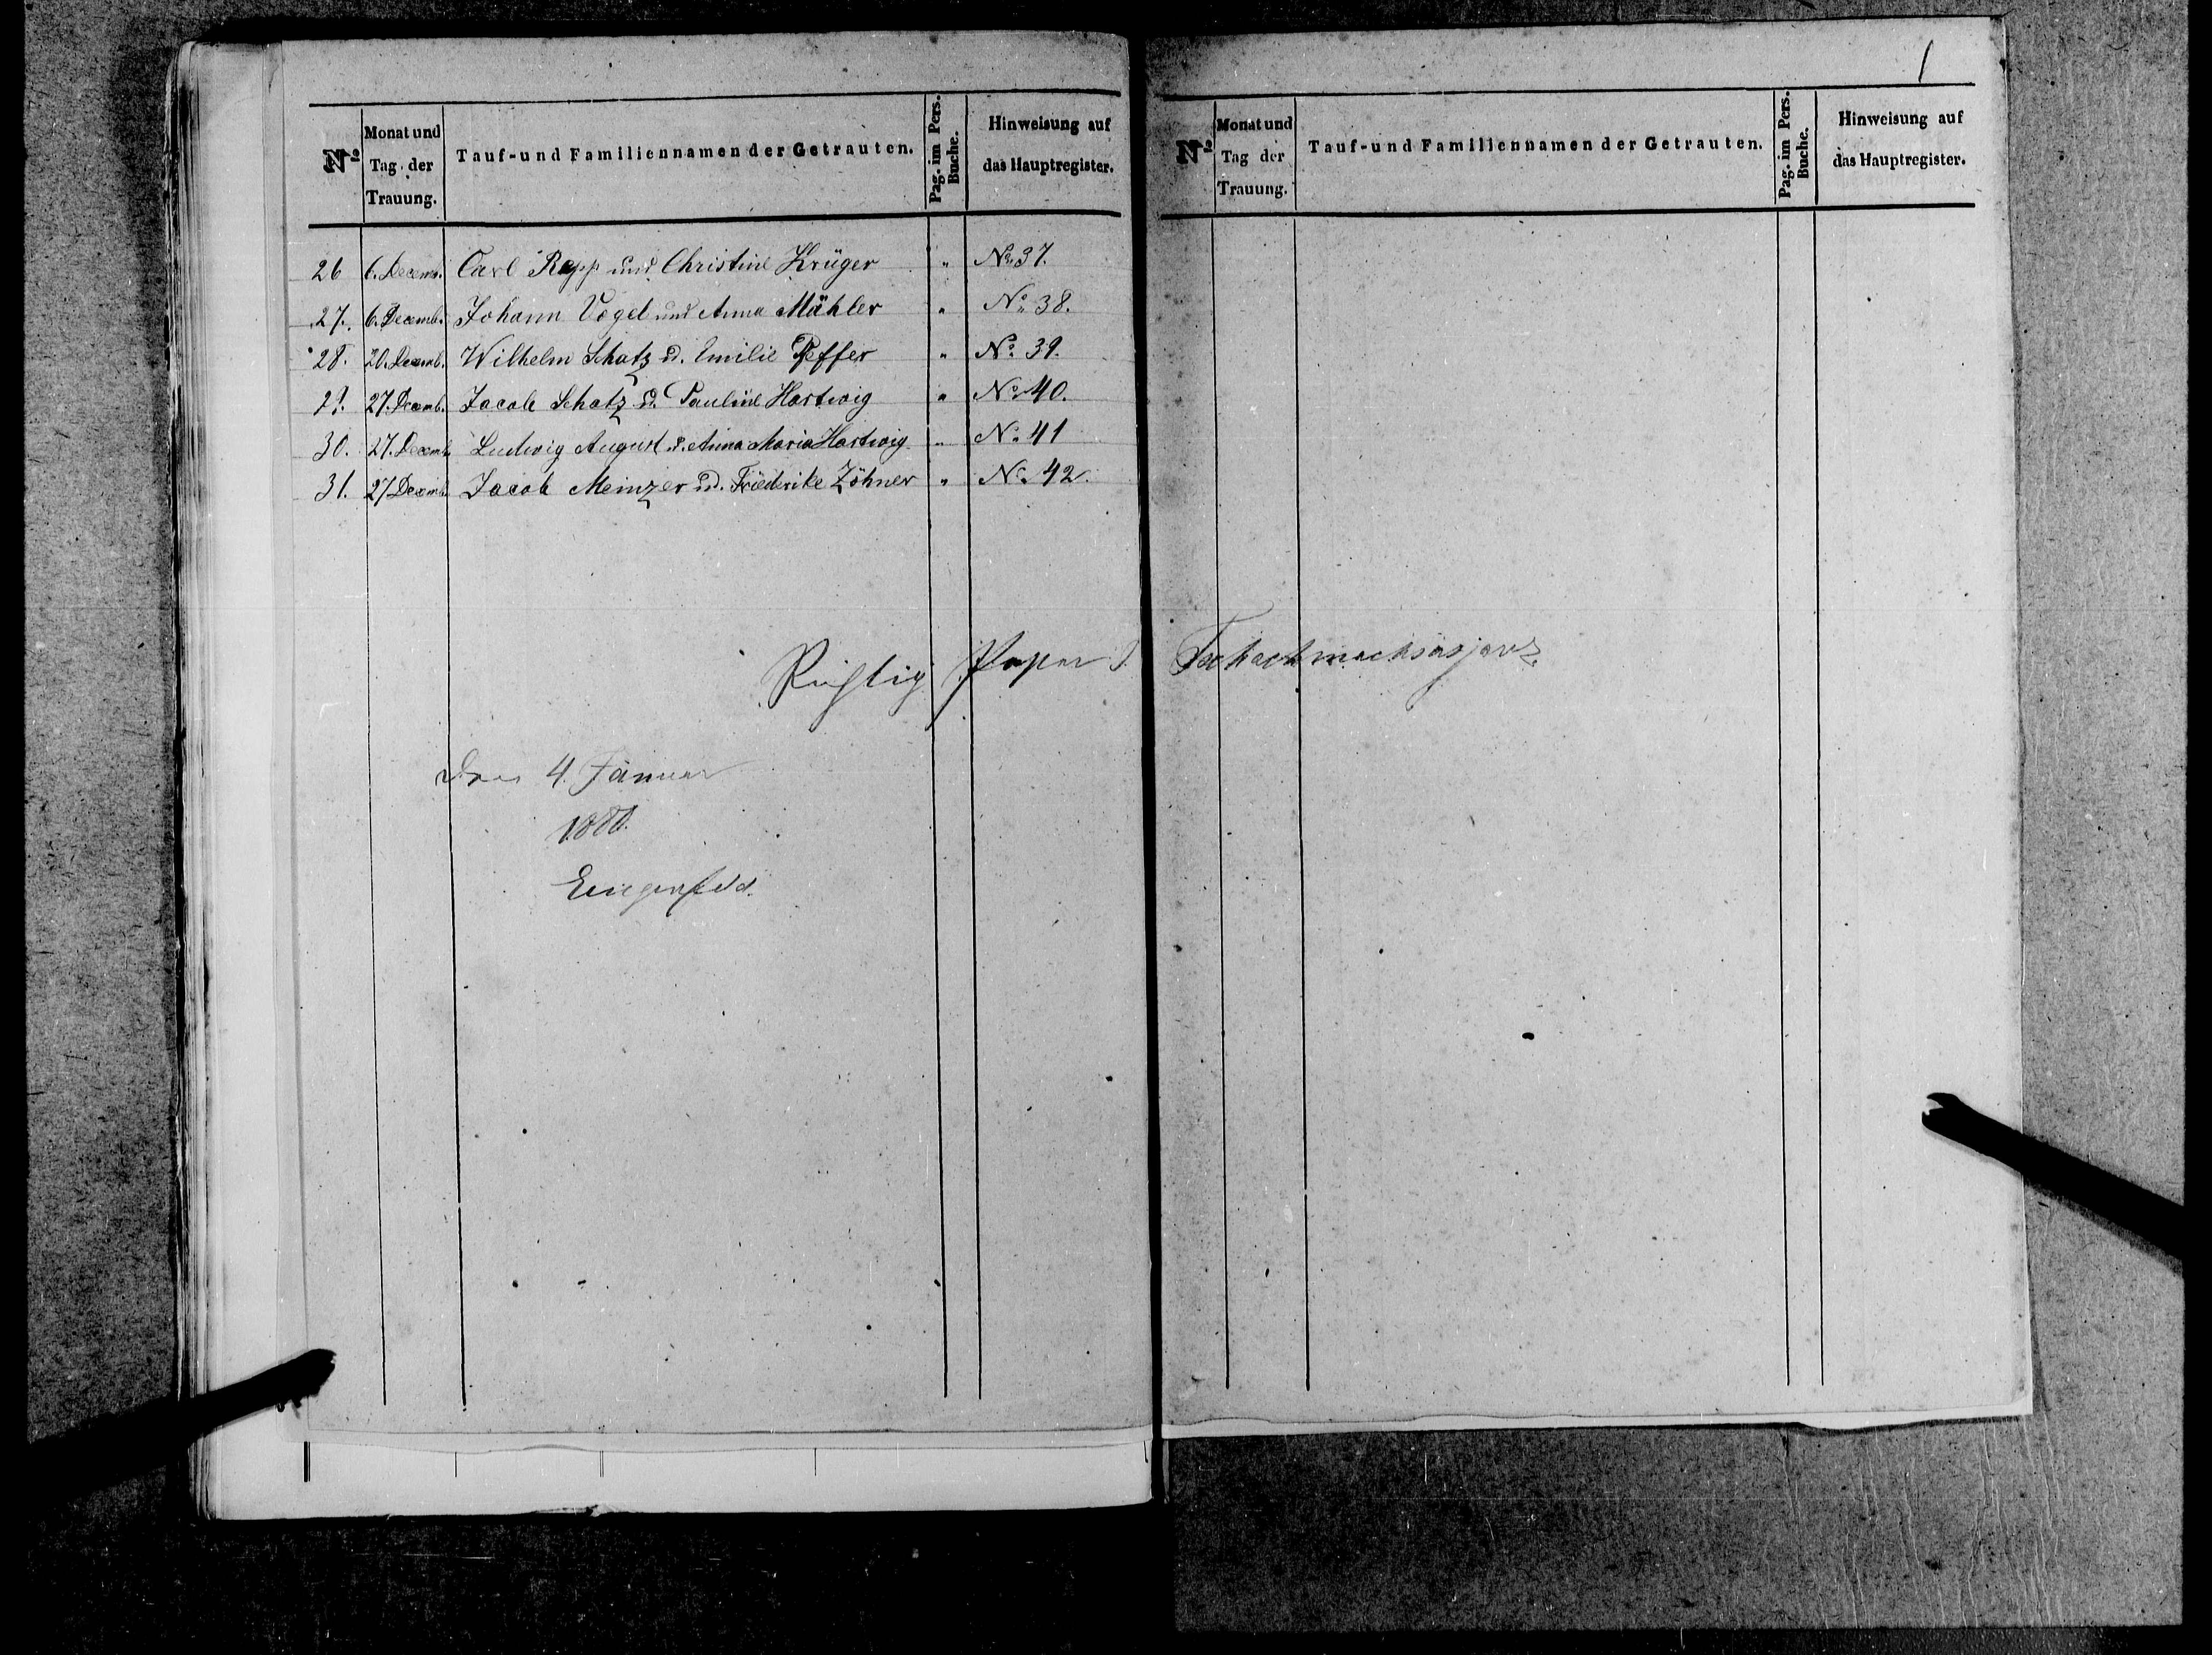 Nº Monat und Tag der Trauung. Tauf- und Familiennamen der Getrauten. Pag. im Pers. Buche. Hinweisung auf das Hauptregister.
26 6. Decemb. Carl Repp und Christine Krüger " No 37.
27. 6. Decemb. Johann Vogel und Anna Mähler " No 38.
28. 20. Decemb. Wilhelm Schatz u. Emilie Peffer " No 39.
29. 27. Decemb. Jacob Schatz u. Pauline Hartwig " No 40.
30. 27. Decemb. Ludwig August u. Anna Maria Hartwig " No 41
31. 27 Decemb. Jacob Meinzer u. Friederike Zöhner " No 42.
Richtig Pastor
den 4. Januar
1881.
Eugenfeld.
1
Nº Monat und Tag der Trauung. Tauf- und Familiennamen der Getrauten. Pag. im Pers. Buche. Hinweisung auf das Hauptregister.